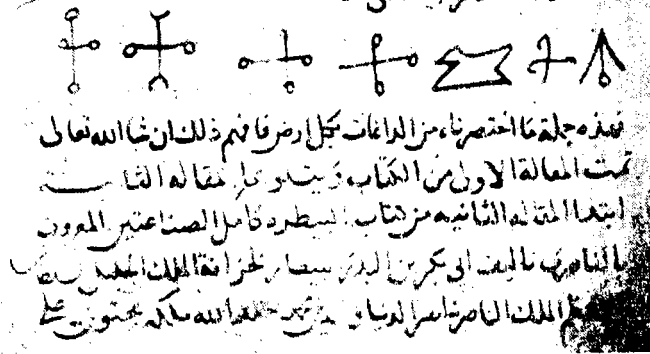 فهذه جملة ما اختصرناه من الداغات بكل ارض فافهم ذلك ان شا الله تعالى
تمت المقالة الاولى من الكتاب ويتلوها المقاله الثانية
ابتدا المقاله الثانيه من كتاب البيطره كامل الصناعتين المعروف
بالناصري تاليف ابى بكر بن البدر بيطار لخزانة الملك
الملك الناصر ناصر الدنيا و محمد خلد الله ملكه يحتوى على